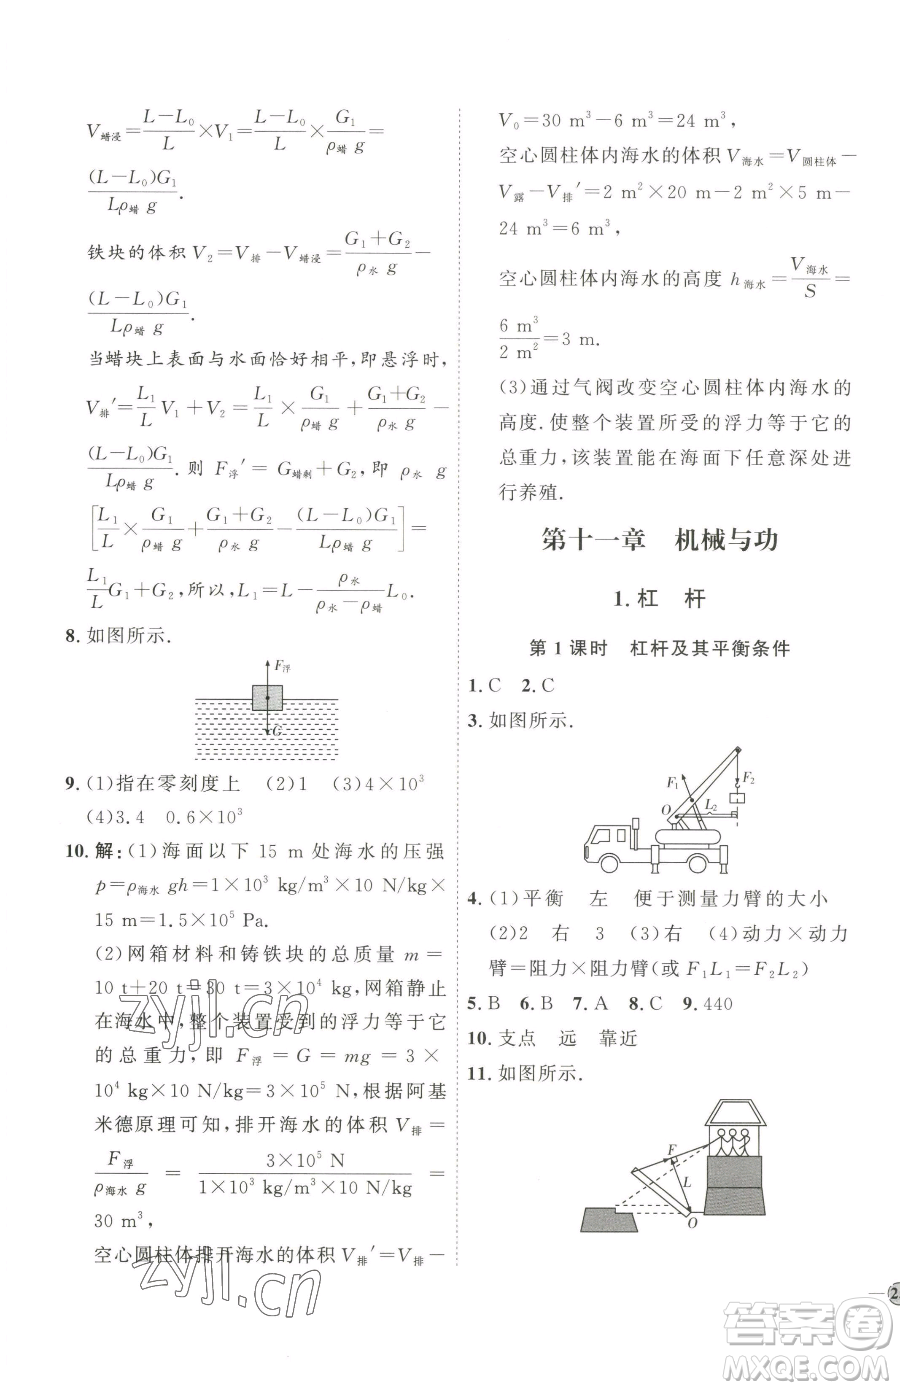 V蜡浸=(L−L₀)/L×V₁=(L−L₀)/L×G₁/(ρ蜡 g)=
(L−L₀)G₁/(Lρ蜡 g).
铁块的体积 V₂=V排−V蜡浸=(G₁+G₂)/(ρ水 g)−
(L−L₀)G₁/(Lρ蜡 g).
当蜡块上表面与水面恰好相平,即悬浮时,
V排′=L₁/L V₁+V₂=L₁/L×G₁/(ρ蜡 g)+(G₁+G₂)/(ρ水 g)−
(L−L₀)G₁/(Lρ蜡 g).则 F浮′=G蜡剩+G₂,即 ρ水 g
[L₁/L×G₁/(ρ蜡 g)+(G₁+G₂)/(ρ水 g)−(L−L₀)G₁/(Lρ蜡 g)]=
L₁/L G₁+G₂,所以,L₁=ρ水/(ρ水−ρ蜡)L₀.
8. 如图所示.
F浮
G
9. (1)指在零刻度上 (2)1 (3)4×10³
(4)3.4 0.6×10³
10. 解:(1)海面以下 15 m 处海水的压强
p=ρ海水 gh=1×10³ kg/m³×10 N/kg×
15 m=1.5×10⁵ Pa.
(2)网箱材料和铸铁块的总质量 m=
10 t+20 t=30 t=3×10⁴ kg,网箱静止
在海水中,整个装置受到的浮力等于它
的总重力,即 F浮=G=mg=3×
10⁴ kg×10 N/kg=3×10⁵ N,根据阿基
米德原理可知,排开海水的体积 V排=
F浮/(ρ海水 g)=3×10⁵ N/(1×10³ kg/m³×10 N/kg)=
30 m³,
空心圆柱体排开海水的体积 V排′=V排−
V₀=30 m³−6 m³=24 m³,
空心圆柱体内海水的体积 V海水=V圆柱体−
V露−V排′=2 m²×20 m−2 m²×5 m−
24 m³=6 m³,
空心圆柱体内海水的高度 h海水=V海水/S=
6 m³/2 m²=3 m.
(3)通过气阀改变空心圆柱体内海水的
高度.使整个装置所受的浮力等于它的
总重力,该装置能在海面下任意深处进
行养殖.
第十一章 机械与功
1.杠 杆
第1课时 杠杆及其平衡条件
1. C 2. C
3. 如图所示.
F₁ F₂
L₂
O
4. (1)平衡 左 便于测量力臂的大小
(2)2 右 3 (3)右 (4)动力×动力
臂=阻力×阻力臂(或 F₁L₁=F₂L₂)
5. B 6. B 7. A 8. C 9. 440
10. 支点 远 靠近
11. 如图所示.
F
L
O
2
zyjl.cn
zyjl.cn
答案圈
MXQE.COM